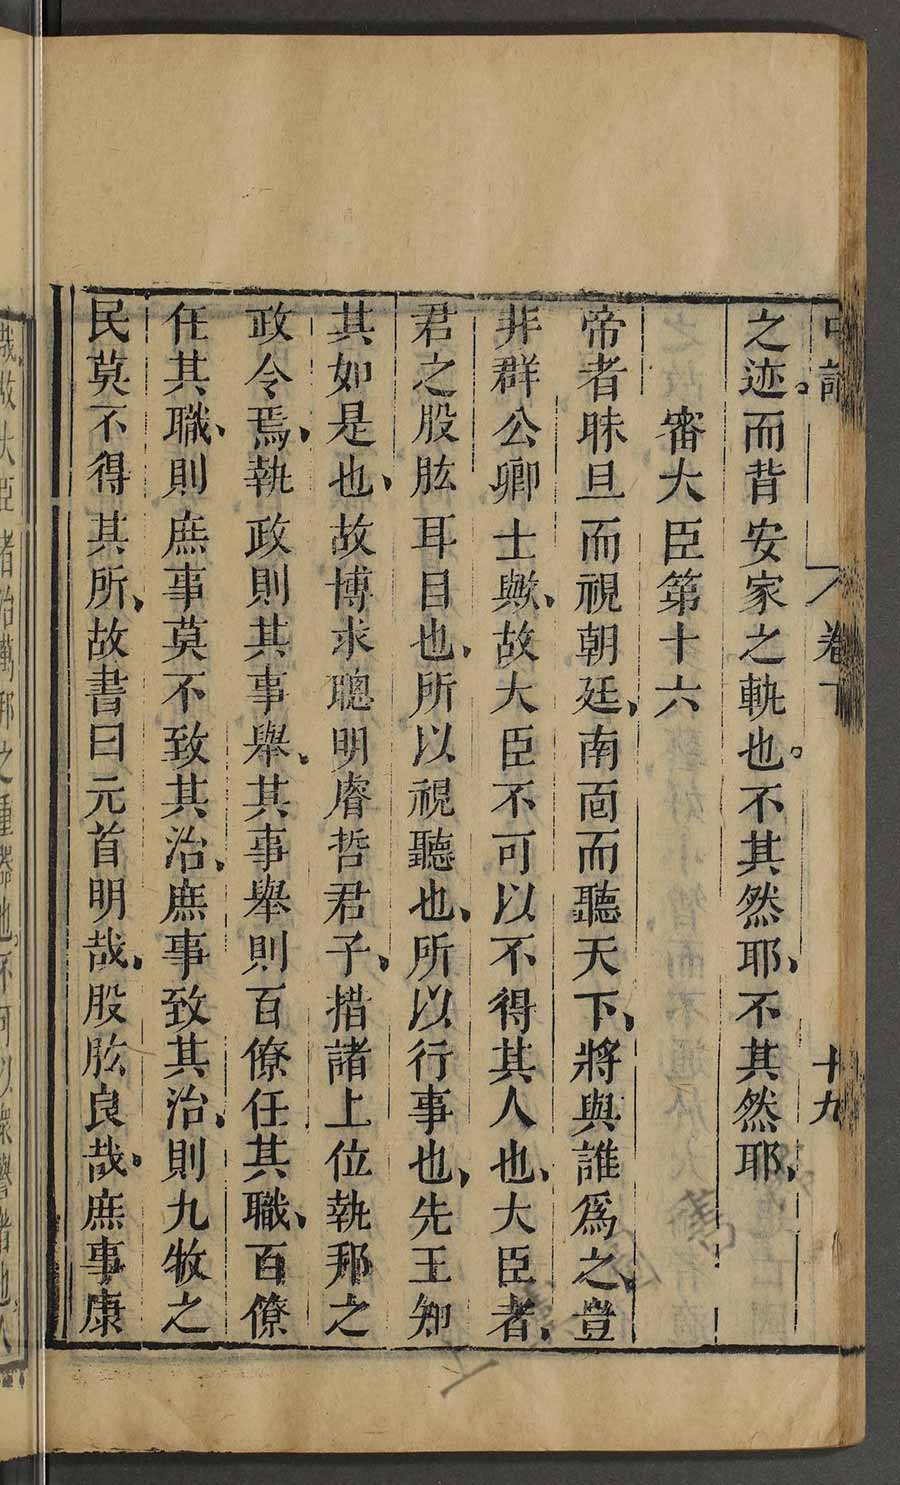 中論 卷下 十九
之迹。而背安家之軌也。不其然耶、不其然耶、
審大臣第十六
帝者昧旦而視朝廷、南面而聽天下、將與誰爲之、豈
非群公卿士歟、故大臣不可以不得其人也、大臣者、
君之股肱耳目也、所以視聽也、所以行事也、先王知
其如是也、故博求聰明睿哲君子、措諸上位執邦之
政令焉、執政則其事舉、其事舉則百僚任其職、百僚
任其職、則庶事莫不致其治、庶事致其治、則九牧之
民莫不得其所、故書曰元首明哉、股肱良哉、庶事康
哉故大臣者治萬邦之重器也、不可以衆譽者也、人